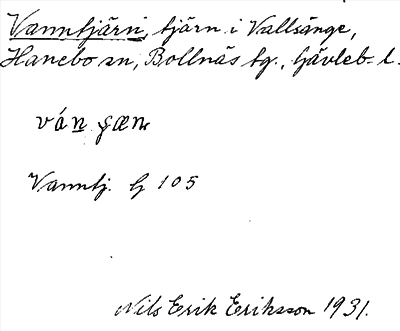 Vanntjärn, tjärn i Vallsänge,
Hanebo sn, Bollnäs tg., Gävleb. l.
Vanntj. G 105
Nils Erik Eriksson 1931.